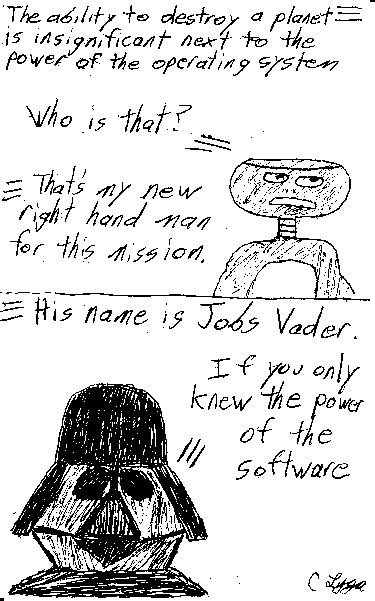 The ability to destroy a planet
is insignificant next to the
power of the operating system
Who is that?
That's my new
right hand man
for this mission.
His name is Jobs Vader.
If you only
knew the power
of the
software
C Lyga